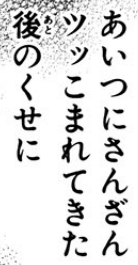 あいつにさんざん
ツッこまれてきた
後のくせに